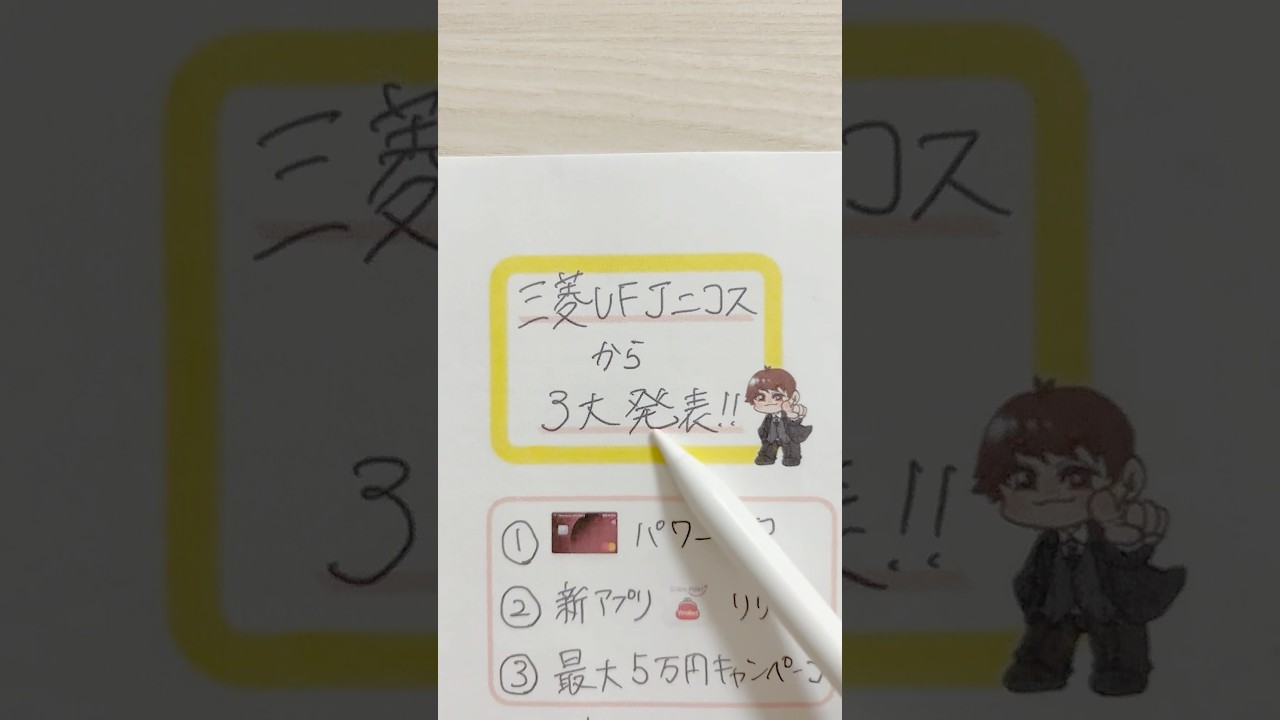 三菱UFJニコス
から
3大発表!!
① パワー
② 新アプリ リリ
③ 最大5万円キャンペー